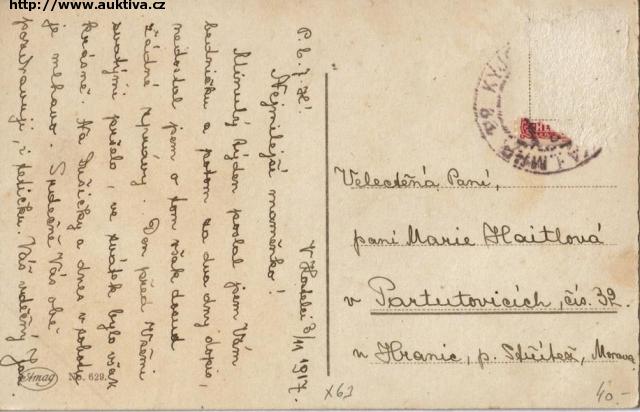 http://www.auktiva.cz
P. b. J. K!
V Hostelci 3/11 1917.
Nejmilejší maměnko!
Minulý týden poslal jsem Vám
bedničku a potom za dva dny dopis,
nedostal jsem o tom však dosud
žádné zprávy. Den před Všemi
svatými pršelo, ve svátek bylo však
krásně. Na Dušičky a dnes v sobotu
je mlhavo. Srdečně Vás obě
pozdravuji, i tetičku. Váš vděčný Jan
Amag
No. 629.
Velectěná Paní,
paní Marie Haitlová
v Partutovicích, čís. 32.
u Hranic, p. Střítež, Morava
x63
40.-